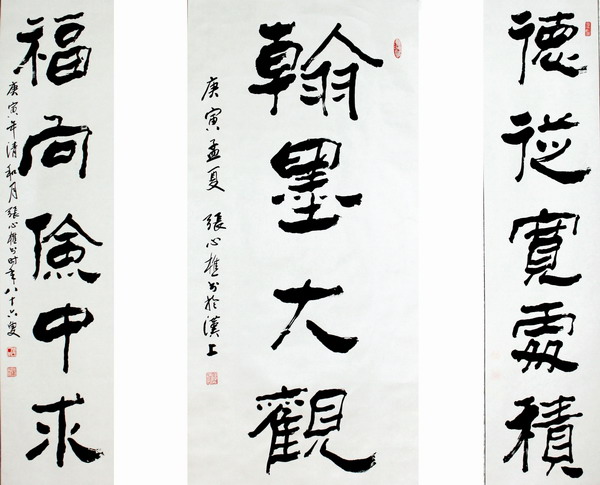 德從寬處積
翰墨大觀
庚寅孟夏 張心樵书於漢上
福向儉中求
庚寅年清和月張心樵书时年八十六叟